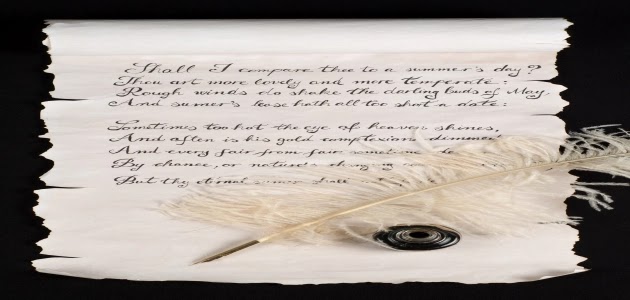 Shall I compare thee to a summer's day?
Thou art more lovely and more temperate:
Rough winds do shake the darling buds of May,
And sumer's lease hath all too shot a date:
Sometimes too hot the eye of heaven shines,
And often is his gold complexion dimmed
And every fair from fair sometime
By chance, or nature's changing
But thy eternal sumer shall